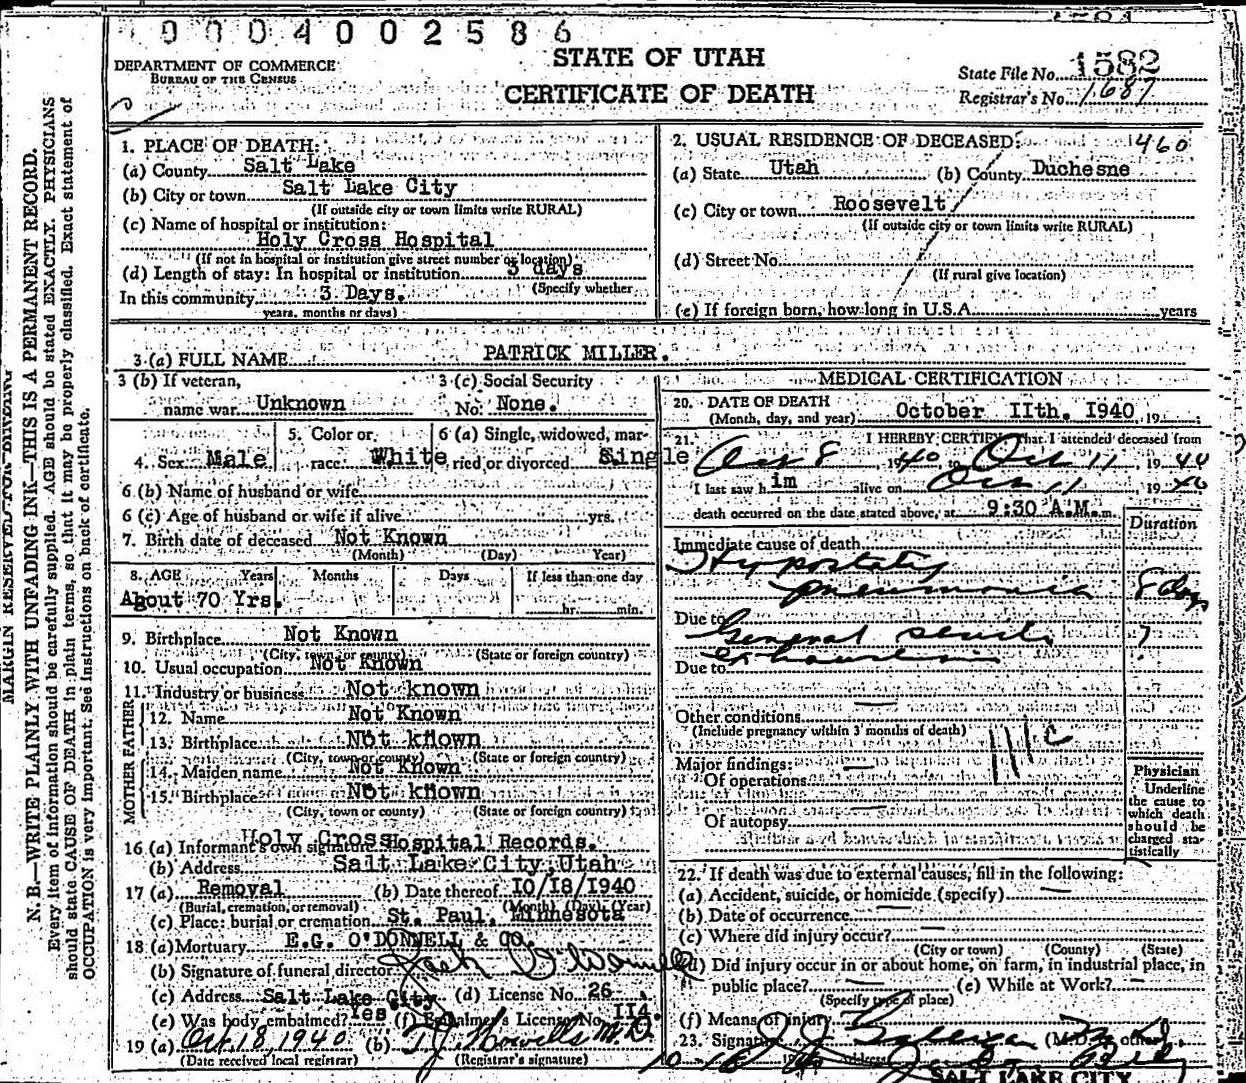 0004002586
STATE OF UTAH
CERTIFICATE OF DEATH
DEPARTMENT OF COMMERCE
BUREAU OF THE CENSUS
State File No. 1582
Registrar's No. 1687
MARGIN RESERVED FOR BINDING
N. B.—WRITE PLAINLY WITH UNFADING INK—THIS IS A PERMANENT RECORD.
Every item of information should be carefully supplied. AGE should be stated EXACTLY. PHYSICIANS
should state CAUSE OF DEATH in plain terms, so that it may be properly classified. Exact statement of
OCCUPATION is very important. See instructions on back of certificate.
1. PLACE OF DEATH:
(a) County Salt Lake
(b) City or town Salt Lake City
(If outside city or town limits write RURAL)
(c) Name of hospital or institution:
Holy Cross Hospital
(If not in hospital or institution give street number or location)
(d) Length of stay: In hospital or institution 3 days
(Specify whether
In this community 3 Days.
years, months or days)
2. USUAL RESIDENCE OF DECEASED: 460
(a) State Utah (b) County Duchesne
(c) City or town Roosevelt
(If outside city or town limits write RURAL)
(d) Street No.
(If rural give location)
(e) If foreign born, how long in U.S.A. years
3 (a) FULL NAME PATRICK MILLER.
3 (b) If veteran, name war Unknown
3 (c) Social Security No. None.
4. Sex Male 5. Color or race White 6 (a) Single, widowed, married or divorced Single
6 (b) Name of husband or wife
6 (c) Age of husband or wife if alive yrs.
7. Birth date of deceased Not Known
(Month) (Day) (Year)
8. AGE Years Months Days If less than one day
About 70 Yrs. hr. min.
9. Birthplace Not Known
(City, town or county) (State or foreign country)
10. Usual occupation Not Known
11. Industry or business Not known
FATHER
12. Name Not Known
13. Birthplace Not known
(City, town or county) (State or foreign country)
MOTHER
14. Maiden name Not Known
15. Birthplace Not known
(City, town or county) (State or foreign country)
16 (a) Informant's own signature Holy Cross Hospital Records.
(b) Address Salt Lake City, Utah
17 (a) Removal (b) Date thereof 10/18/1940
(Burial, cremation, or removal) (Month) (Day) (Year)
(c) Place: burial or cremation St. Paul, Minnesota
18 (a) Mortuary E.G. O'DONNELL & CO.
(b) Signature of funeral director Jack O'Donnell
(c) Address Salt Lake City (d) License No. 26
(e) Was body embalmed? Yes (f) Embalmer's License No. 114.
19 (a) Oct. 18, 1940 (b) T.J. Howells M.D.
(Date received local registrar) (Registrar's signature)
MEDICAL CERTIFICATION
20. DATE OF DEATH
(Month, day, and year) October 11th. 1940, 19
21. I HEREBY CERTIFY That I attended deceased from
Oct 8, 1940 to Oct 11, 1940
I last saw him alive on Oct 11, 1940
death occurred on the date stated above, at 9:30 A.M. m.
Duration
Immediate cause of death
Hypostatic
pneumonia 8 days
Due to
General senile ?
exhaustion
Due to
Other conditions
(Include pregnancy within 3 months of death)
Major findings:
Of operations
Of autopsy
Physician
Underline
the cause to
which death
should be
charged sta-
tistically
22. If death was due to external causes, fill in the following:
(a) Accident, suicide, or homicide (specify)
(b) Date of occurrence
(c) Where did injury occur?
(City or town) (County) (State)
(d) Did injury occur in or about home, on farm, in industrial place, in
public place? (e) While at Work?
(Specify type of place)
(f) Means of injury
23. Signature J.J. (M.D. or other)
Address
SALT LAKE CITY